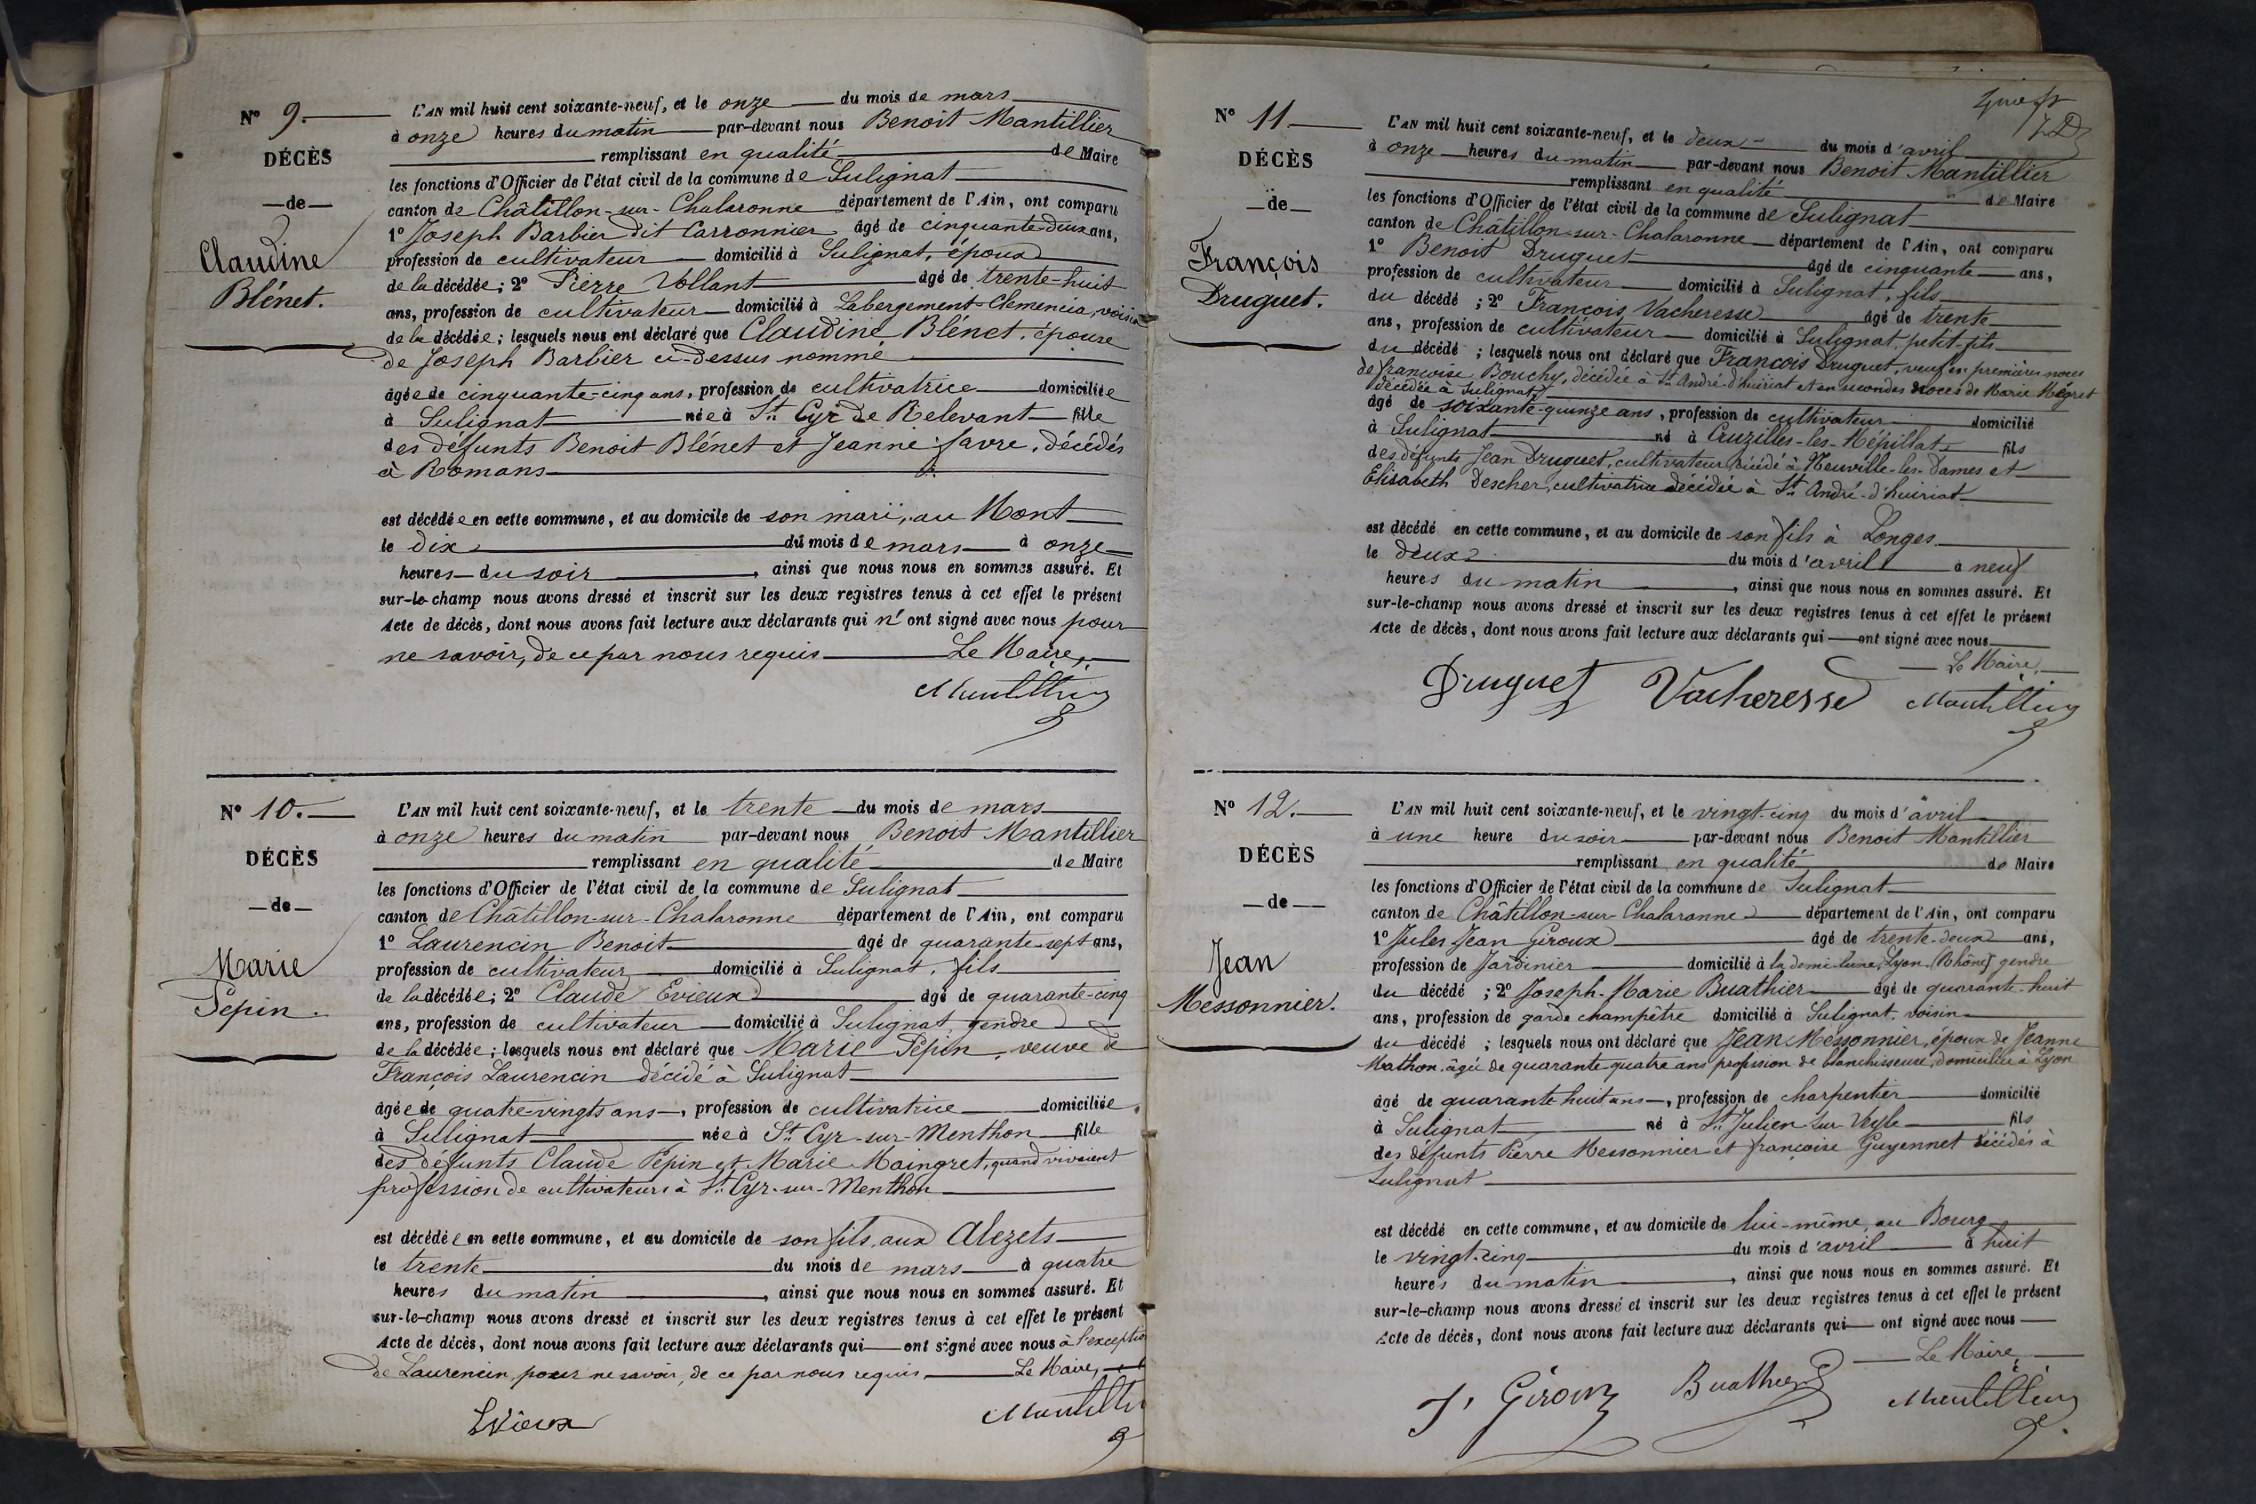 N° 9.
DÉCÈS
de
Claudine
Blénet.
L'AN mil huit cent soixante-neuf, et le onze du mois de mars
à onze heures du matin par-devant nous Benoit Mantillier
remplissant en qualité de Maire
les fonctions d'Officier de l'état civil de la commune de Sulignat
canton de Châtillon-sur-Chalaronne département de l'Ain, ont comparu
1° Joseph Barbier dit Carronnier âgé de cinquante-deux ans,
profession de cultivateur domicilié à Sulignat, époux
de la décédée ; 2° Pierre Vollant âgé de trente-huit
ans, profession de cultivateur domicilié à Labergement-Clemencia, voisin
de la décédée ; lesquels nous ont déclaré que Claudine Blénet, épouse
de Joseph Barbier ci-dessus nommé
âgée de cinquante-cinq ans, profession de cultivatrice domiciliée
à Sulignat née à St Cyr de Relevant fille
des défunts Benoit Blénet et Jeanne favre, décédés
à Romans
est décédée en cette commune, et au domicile de son mari, au Mont
le dix du mois de mars à onze
heures du soir, ainsi que nous nous en sommes assuré. Et
sur-le-champ nous avons dressé et inscrit sur les deux registres tenus à cet effet le présent
Acte de décès, dont nous avons fait lecture aux déclarants qui n'ont signé avec nous pour
ne savoir, de ce par nous requis Le Maire,
Mantillier
N° 10.
DÉCÈS
de
Marie
Pepin.
L'AN mil huit cent soixante-neuf, et le trente du mois de mars
à onze heures du matin par-devant nous Benoit Mantillier
remplissant en qualité de Maire
les fonctions d'Officier de l'état civil de la commune de Sulignat
canton de Châtillon-sur-Chalaronne département de l'Ain, ont comparu
1° Laurencin Benoit âgé de quarante-sept ans,
profession de cultivateur domicilié à Sulignat, fils
de la décédée ; 2° Claude Evieux âgé de quarante-cinq
ans, profession de cultivateur domicilié à Sulignat, gendre
de la décédée ; lesquels nous ont déclaré que Marie Pepin, veuve de
François Laurencin décédé à Sulignat
âgée de quatre-vingts ans, profession de cultivatrice domiciliée
à Sulignat née à St Cyr-sur-Menthon fille
des défunts Claude Pepin et Marie Maingret, quand vivaient
profession de cultivateurs à St Cyr-sur-Menthon
est décédée en cette commune, et au domicile de son fils, aux Alezets
le trente du mois de mars à quatre
heures du matin, ainsi que nous nous en sommes assuré. Et
sur-le-champ nous avons dressé et inscrit sur les deux registres tenus à cet effet le présent
Acte de décès, dont nous avons fait lecture aux déclarants qui ont signé avec nous à l'exception
de Laurencin, pour ne savoir, de ce par nous requis Le Maire,
Evieux Mantillier
N° 11
DÉCÈS
de
François
Druguet.
L'AN mil huit cent soixante-neuf, et le deux du mois d'avril
à onze heures du matin par-devant nous Benoit Mantillier
remplissant en qualité de Maire
les fonctions d'Officier de l'état civil de la commune de Sulignat
canton de Châtillon-sur-Chalaronne département de l'Ain, ont comparu
1° Benoit Druguet âgé de cinquante ans,
profession de cultivateur domicilié à Sulignat, fils
du décédé ; 2° François Vacheresse âgé de trente
ans, profession de cultivateur domicilié à Sulignat, petit-fils
du décédé ; lesquels nous ont déclaré que François Druguet, veuf en premières noces
de françoise Bouchy, décédée à St André-d'huiriat et en secondes noces de Marie Mégret
décédée à Sulignat
âgé de soixante-quinze ans, profession de cultivateur domicilié
à Sulignat né à Cruzilles-les-Mépillat fils
des défunts Jean Druguet, cultivateur, décédé à Neuville-les-Dames et
Elisabeth Descher, cultivatrice décédée à St André-d'huiriat
est décédé en cette commune, et au domicile de son fils à Longes
le deux du mois d'avril à neuf
heures du matin, ainsi que nous nous en sommes assuré. Et
sur-le-champ nous avons dressé et inscrit sur les deux registres tenus à cet effet le présent
Acte de décès, dont nous avons fait lecture aux déclarants qui ont signé avec nous
Le Maire,
Druguet Vacheresse Mantillier
N° 12.
DÉCÈS
de
Jean
Messonnier.
L'AN mil huit cent soixante-neuf, et le vingt-cinq du mois d'avril
à une heure du soir par-devant nous Benoit Mantillier
remplissant en qualité de Maire
les fonctions d'Officier de l'état civil de la commune de Sulignat
canton de Châtillon-sur-Chalaronne département de l'Ain, ont comparu
1° Jules Jean Giroux âgé de trente-deux ans,
profession de Jardinier domicilié à la demi-lune, Lyon (Rhône) gendre
du décédé ; 2° Joseph-Marie Buathier âgé de quarante-huit
ans, profession de garde champêtre domicilié à Sulignat, voisin
du décédé ; lesquels nous ont déclaré que Jean Messonnier, époux de Jeanne
Mathon, âgée de quarante-quatre ans profession de blanchisseuse, domiciliée à Lyon
âgé de quarante huit ans, profession de charpentier domicilié
à Sulignat né à St Julien-sur-Veyle fils
des défunts Pierre Messonnier et françoise Guyennet décédés à
Sulignat
est décédé en cette commune, et au domicile de lui-même, au Bourg
le vingt-cinq du mois d'avril à huit
heures du matin, ainsi que nous nous en sommes assuré. Et
sur-le-champ nous avons dressé et inscrit sur les deux registres tenus à cet effet le présent
Acte de décès, dont nous avons fait lecture aux déclarants qui ont signé avec nous
Le Maire
J. Giroux Buathier Mantillier